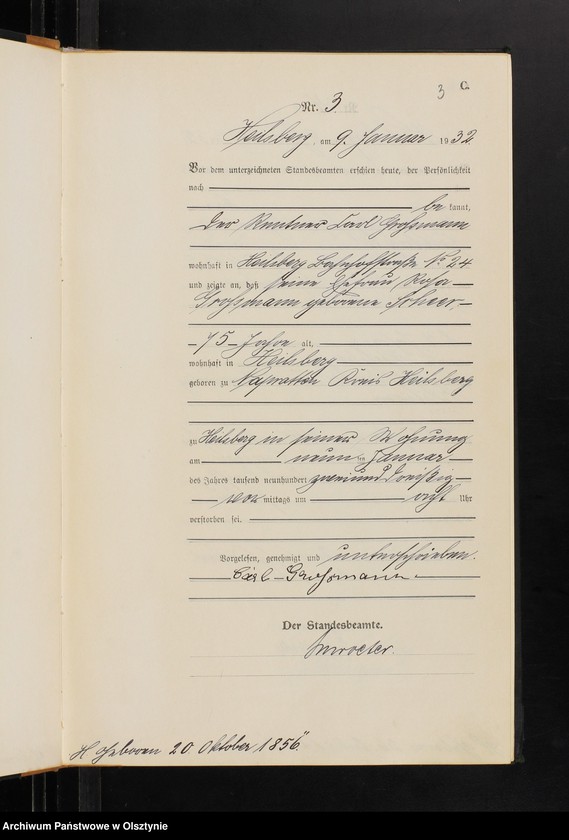 3 C.
Nr. 3
Heilsberg, am 9. Januar 1932
Vor dem unterzeichneten Standesbeamten erschien heute, der Persönlichkeit
nach
be kannt,
der Rentner Carl Grossmann
wohnhaft in Heilsberg Bahnhofstraße No 24
und zeigte an, daß seine Ehefrau, Rosa
Grossmann geborene Scheer
75 Jahre alt,
wohnhaft in Heilsberg
geboren zu Kreis Heilsberg
zu Heilsberg in seiner Wohnung
am neun ten Januar
des Jahres tausend neunhundert zweiunddreißig
vor mittags um acht Uhr
verstorben sei.
Vorgelesen, genehmigt und unterschrieben.
Carl Grossmann
Der Standesbeamte.
geboren 20. Oktober 1856"
Archiwum Państwowe w Olsztynie